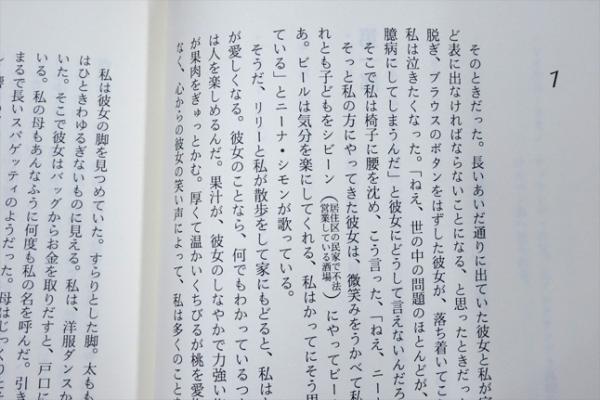 1
そのときだった。長いあいだ通りに出ていた彼女と私が
ど表に出なければならないことになる、と思ったときだった
脱ぎ、ブラウスのボタンをはずした彼女が、落ち着いてこ
私は泣きたくなった。「ねえ、世の中の問題のほとんどが、
臆病にしてしまうんだ」と彼女にどうして言えないんだろ
そこで私は椅子に腰を沈め、こう言った、「ねえ、ニー
そっと私の方にやってきた彼女は、微笑みをうかべて私
れとも子どもをシビーン（居住区の民家で不法営業している酒場）にやってビー
あ。ビールは気分を楽にしてくれる、私はかってにそう思
ている」とニーナ・シモンが歌っている。
そうだ、リリーと私が散歩をして家にもどると、私は
が愛しくなる。彼女のことなら、何でもわかっているつも
は人を楽しめるんだ。果汁が、彼女のしなやかで力強い指
が果肉をぎゅっとかむ。厚くて温かいくちびるが桃を愛
なく、心からの彼女の笑い声によって、私は多くのこと
私は彼女の脚を見つめていた。すらりとした脚。太もも
はひときわゆるぎないものに見える。私は、洋服ダンスか
いた。そこで彼女はバッグからお金を取りだすと、戸口に
いる。私の母もあんなふうに何度も私の名を呼んだ。引き
まるで長いスパゲッティのようだった。母はじっくりと